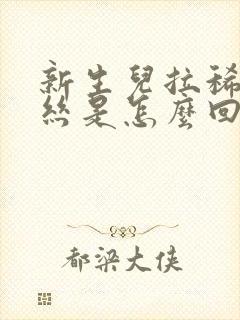 新生兒拉稀
絲是怎麼回
都梁大俠